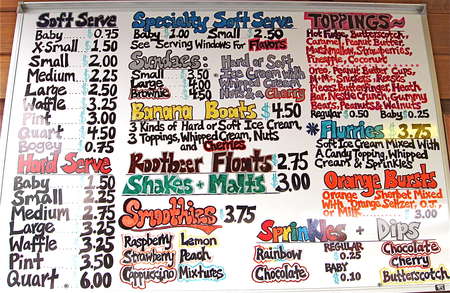 Soft Serve
Baby $0.75
X-Small 1.50
Small 2.00
Medium 2.25
Large 2.50
Waffle 3.25
Pint 3.00
Quart 4.50
Bogey 0.75
Hard Serve
Baby 1.50
Small 2.25
Medium 2.75
Large 3.25
Waffle 3.25
Pint 3.50
Quart 6.00
Specialty Soft Serve
Baby 1.00 Small 2.50
See Serving Windows For Flavors
Sundaes:
Small 3.50
Large 4.50
Brownie 4.50
Hard or Soft
Ice Cream with
and a Cherry
Banana Boats $4.50
3 Kinds of Hard or Soft Ice Cream,
3 Toppings, Whipped Cream, Nuts
and Cherries
Rootbeer Floats $2.75
Shakes + Malts $3.00
Smoothies $3.75
Raspberry Lemon
Strawberry Peach
Cappuccino Mixtures
TOPPINGS~
Hot Fudge, Butterscotch,
Caramel, Peanut Butter,
Marshmallow, Strawberries,
Pineapple, Coconut
Oreo, Peanut Butter Cups,
M+Ms, Snickers, Reeses
Pieces, Butterfinger, Heath
Bar, Nestle Crunch, Gummy
Bears, Peanuts & Walnuts
Regular $0.50 Baby $0.25
*Flurries $3.75
Soft Ice Cream Mixed With
A Candy Topping, Whipped
Cream & Sprinkles
Orange Bursts
Orange Sherbet Mixed
With Orange Seltzer, O.J.
or Milk 3.00
Sprinkles + Dips
Rainbow
Chocolate
REGULAR
$0.25
BABY
$0.10
Chocolate
Cherry
Butterscotch